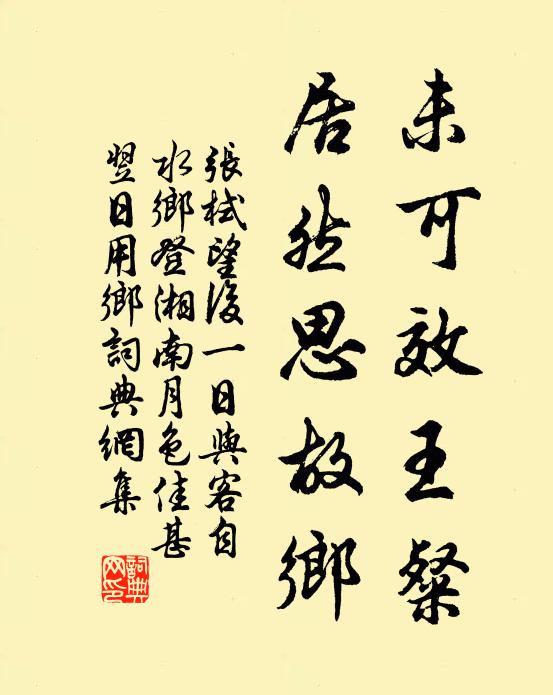 未可效王粲
居然思故鄉
張栻望後一日與客自
水鄉登湘南月色佳甚
翌日用鄉詞典網集
詞典
网印